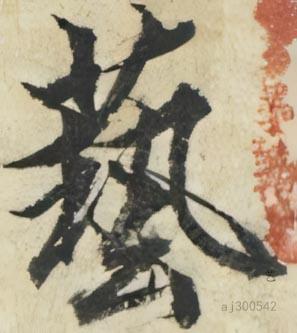 藝
艺
aj300542